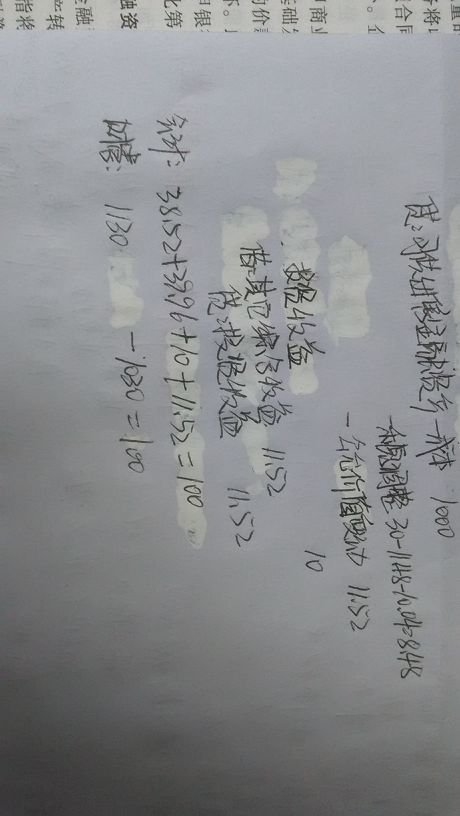 贷：可供出售金融资产—成本 1000
—利息调整 30-11.48-10.04=8.48
—公允价值变动 11.52
投资收益 10
借：其它综合收益 11.52
贷：投资收益 11.52
会计：38.52+39.96+10+11.52=100
1130 -1030=100